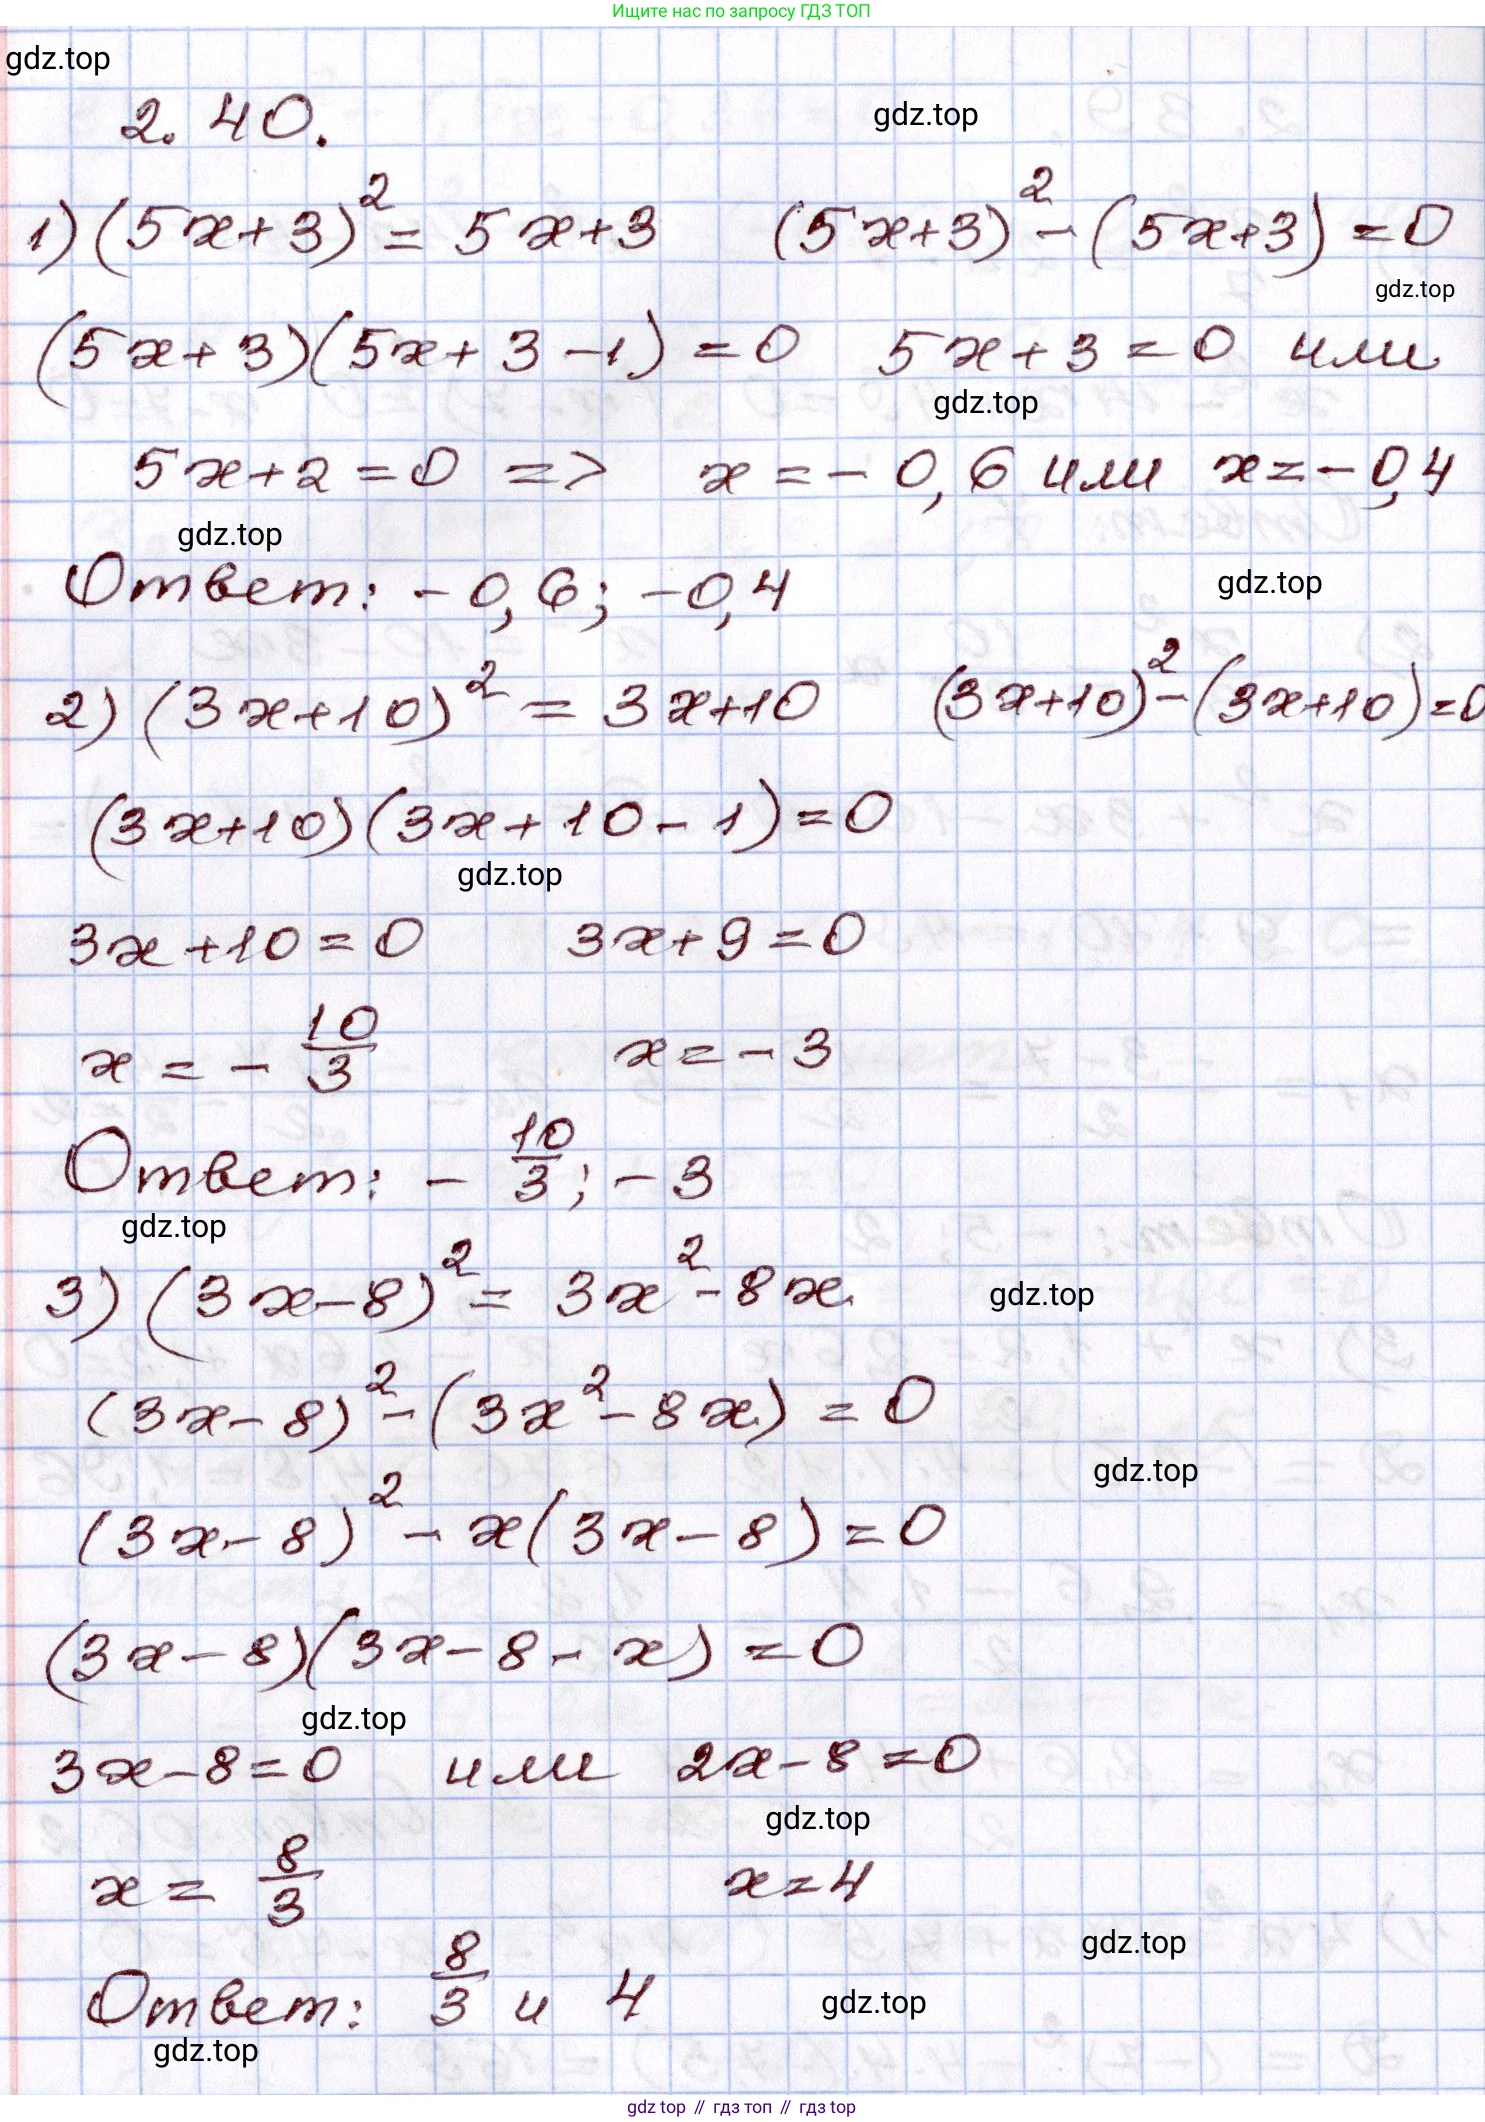 Ищите нас по запросу ГДЗ ТОП
gdz.top
2.40.
gdz.top
1) (5x+3)² = 5x+3 (5x+3)² - (5x+3) = 0
gdz.top
(5x+3)(5x+3-1) = 0 5x+3=0 или
gdz.top
5x+2=0 => x=-0,6 или x=-0,4
gdz.top
Ответ: -0,6; -0,4
gdz.top
2) (3x+10)² = 3x+10 (3x+10)² - (3x+10)=0
(3x+10)(3x+10-1)=0
gdz.top
3x+10=0 3x+9=0
x = - 10/3 x = -3
Ответ: - 10/3; -3
gdz.top
3) (3x-8)² = 3x² - 8x
gdz.top
(3x-8)² - (3x² - 8x) = 0
gdz.top
(3x-8)² - x(3x-8) = 0
(3x-8)(3x-8-x) = 0
gdz.top
3x-8=0 или 2x-8=0
gdz.top
x = 8/3 x=4
gdz.top
Ответ: 8/3 и 4
gdz.top
gdz.top
gdz top // гдз топ // гдз top